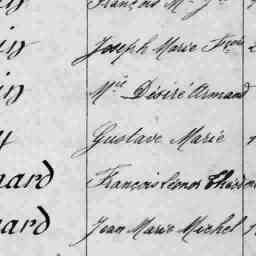 François M.
Joseph Marie Frçois
in Mie Désiré Armand
Gustave Marie
nard François
nard Jean Marie Michel